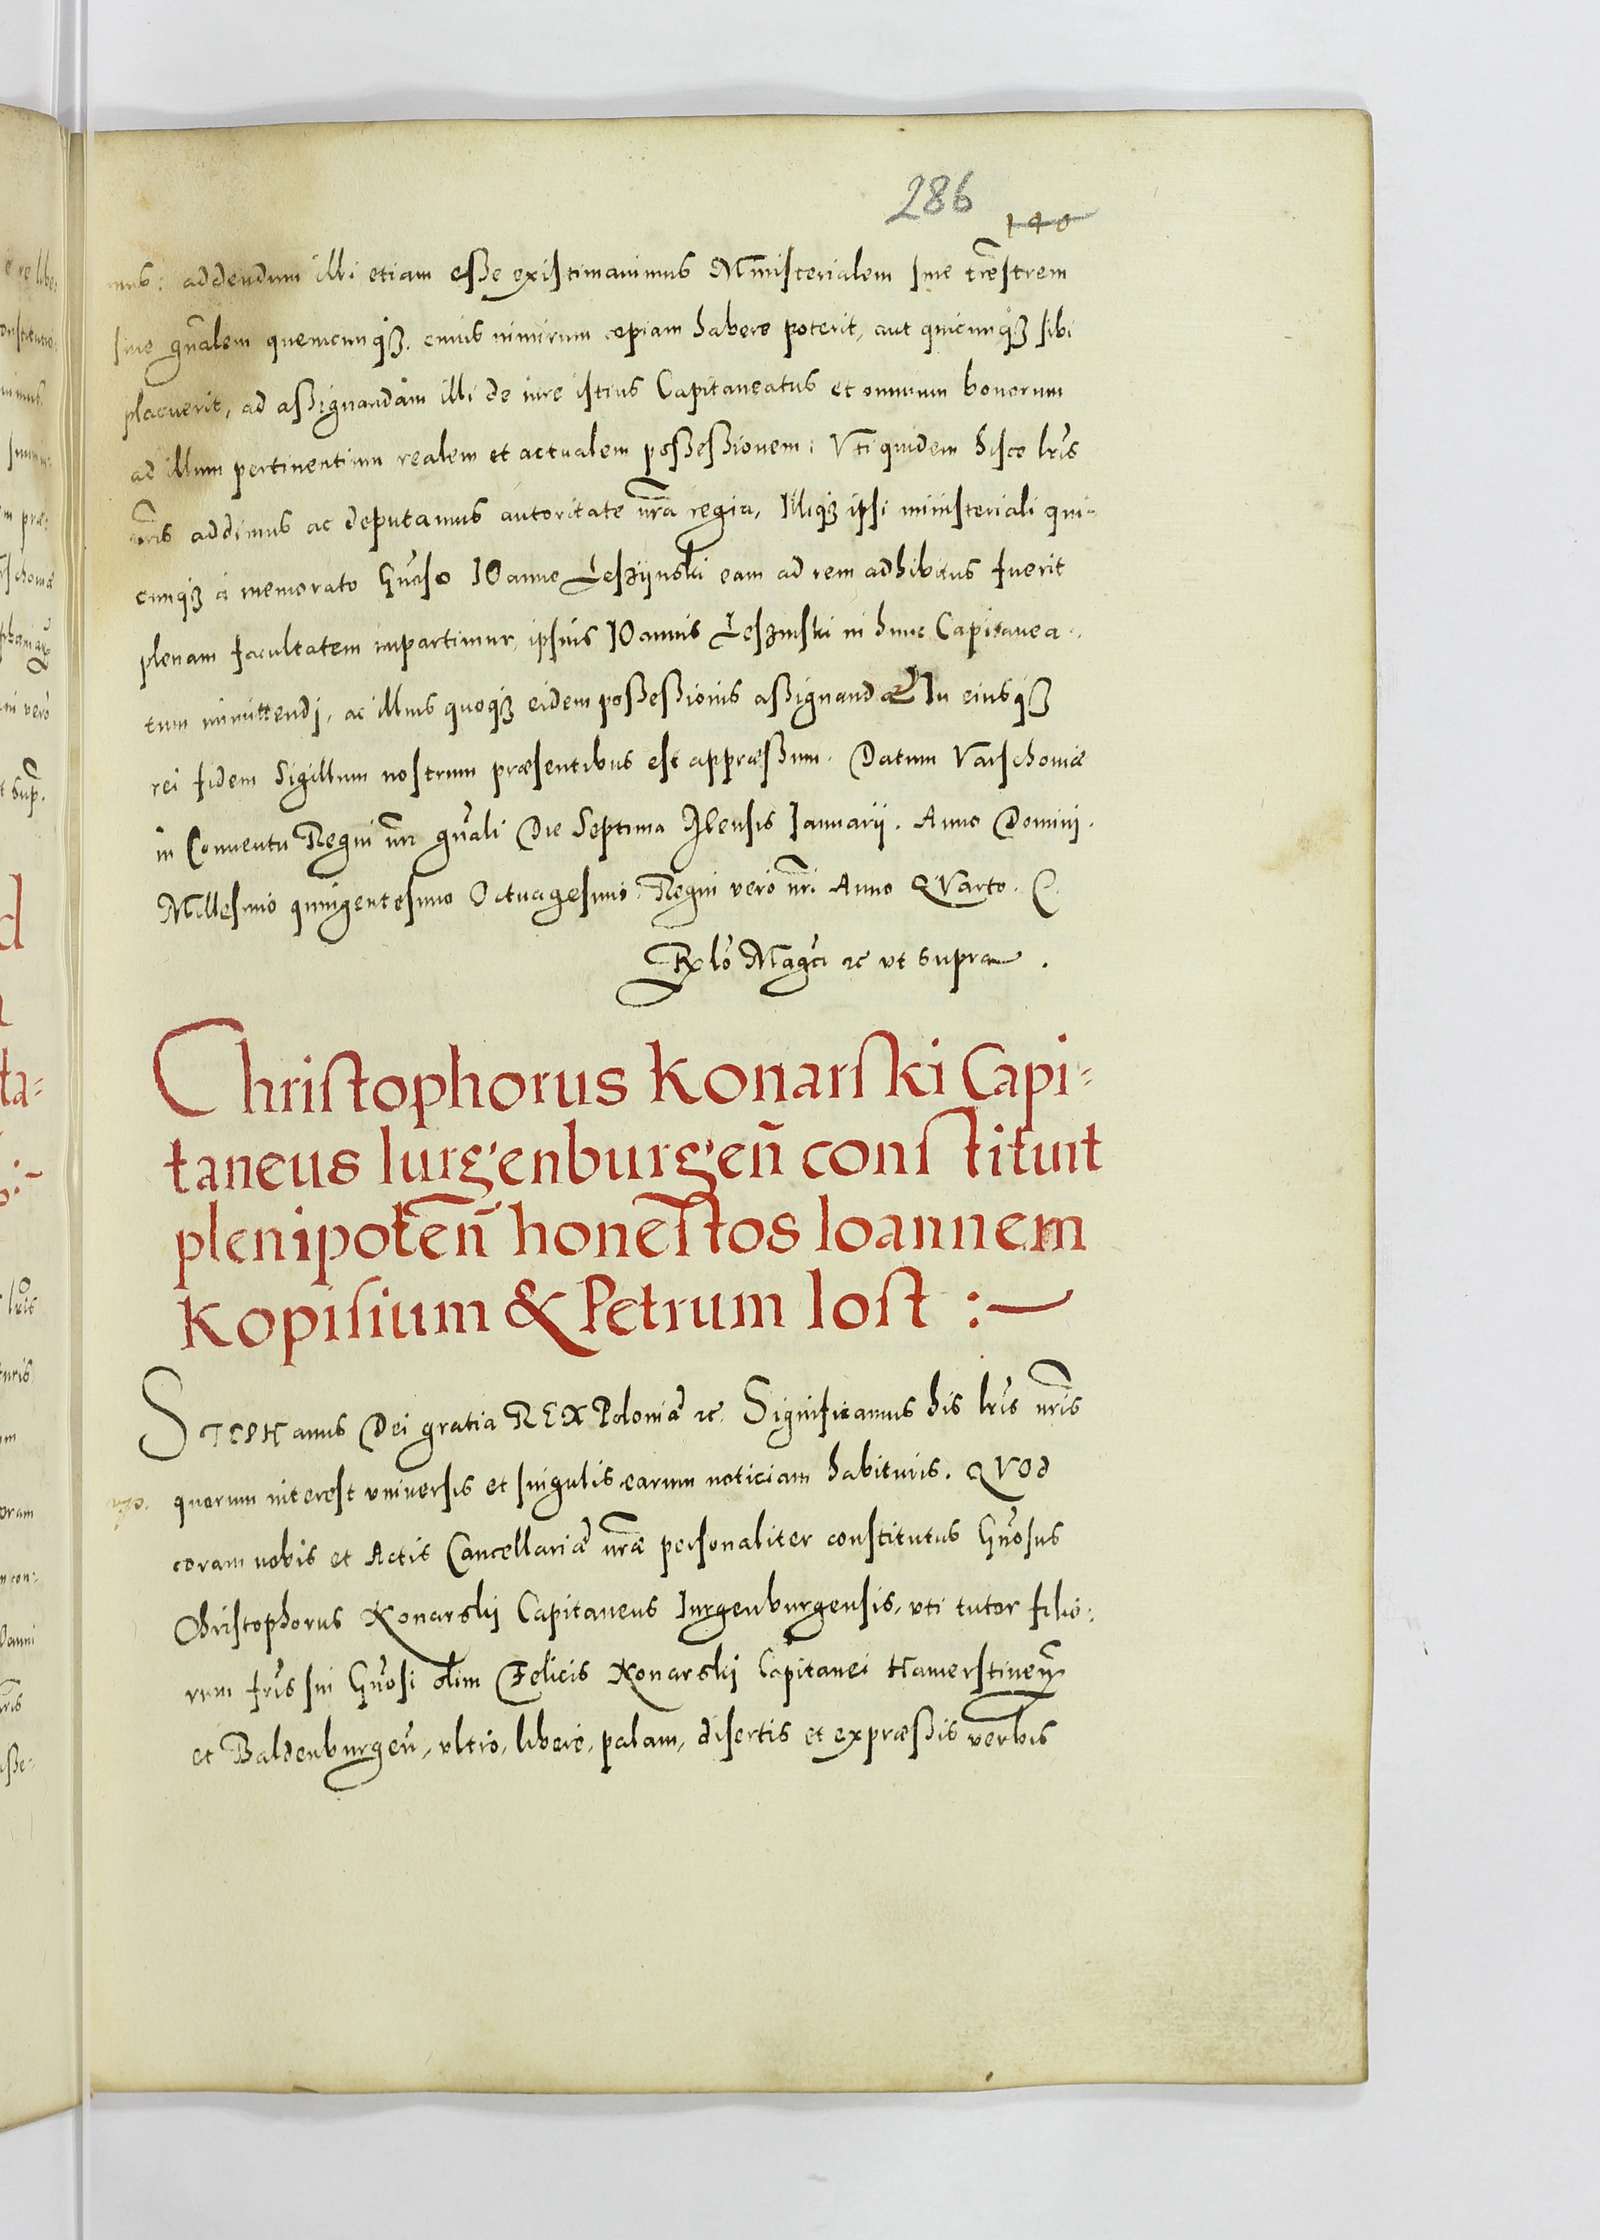 286
140
mus: addendum illi etiam esse existimauimus Ministerialem siue trẽstrem
siue gñalem quemcunq3, cuius nimirum copiam habere poterit, aut quicunq3 sibi
placuerit, ad assignandam illi de iure istius Capitaneatus et omnium bonorum
ad illum pertinentium realem et actualem possessionem: Vti quidem hisce lr̃is
nr̃is addimus ac deputamus autoritate nr̃a regia, Illiq3 ipsi ministeriali qui-
cunq3 à memorato Gñoso IOanne Leszijnski eam ad rem adhibitus fuerit
plenam facultatem impartimur, ipsius IOannis Leszinski in hunc Capitanea-
tum immittendj, ac illius quoq3 eidem possessionis assignandæ In eiusq3
rei fidem Sigillum nostrum præsentibus est appræssum. Datum Varschouiæ
in Conuentu Regni nr̃i gñali Die Septima Mensis Januarij. Anno Dominj.
Millesimo quingentesimo Octuagesimo. Regni vero nr̃i Anno QVarto.
Rẽlo Magci ꝛc vt supra.
Christophorus Konarski Capi-
taneus Iurgenburgeñ constituit
plenipoteñ honestos Ioannem
Kopisium & Petrum Iost :—
STEPHanus Dei gratia REX Poloniæ ꝛc. Significamus his lr̃is nr̃is
quorum interest vniuersis et singulis earum noticiam habituris. QVOd
coram nobis et Actis Cancellariæ nr̃æ personaliter constitutus Gñosus
Christophorus Konarskj Capitaneus Iurgenburgensis, vti tutor filio-
rum fr̃is sui Gñosi olim Felicis Konarskj Capitanei Hamerstineñ
et Baldenburgeñ, vltro, libere, palam, disertis et expræssis verbis